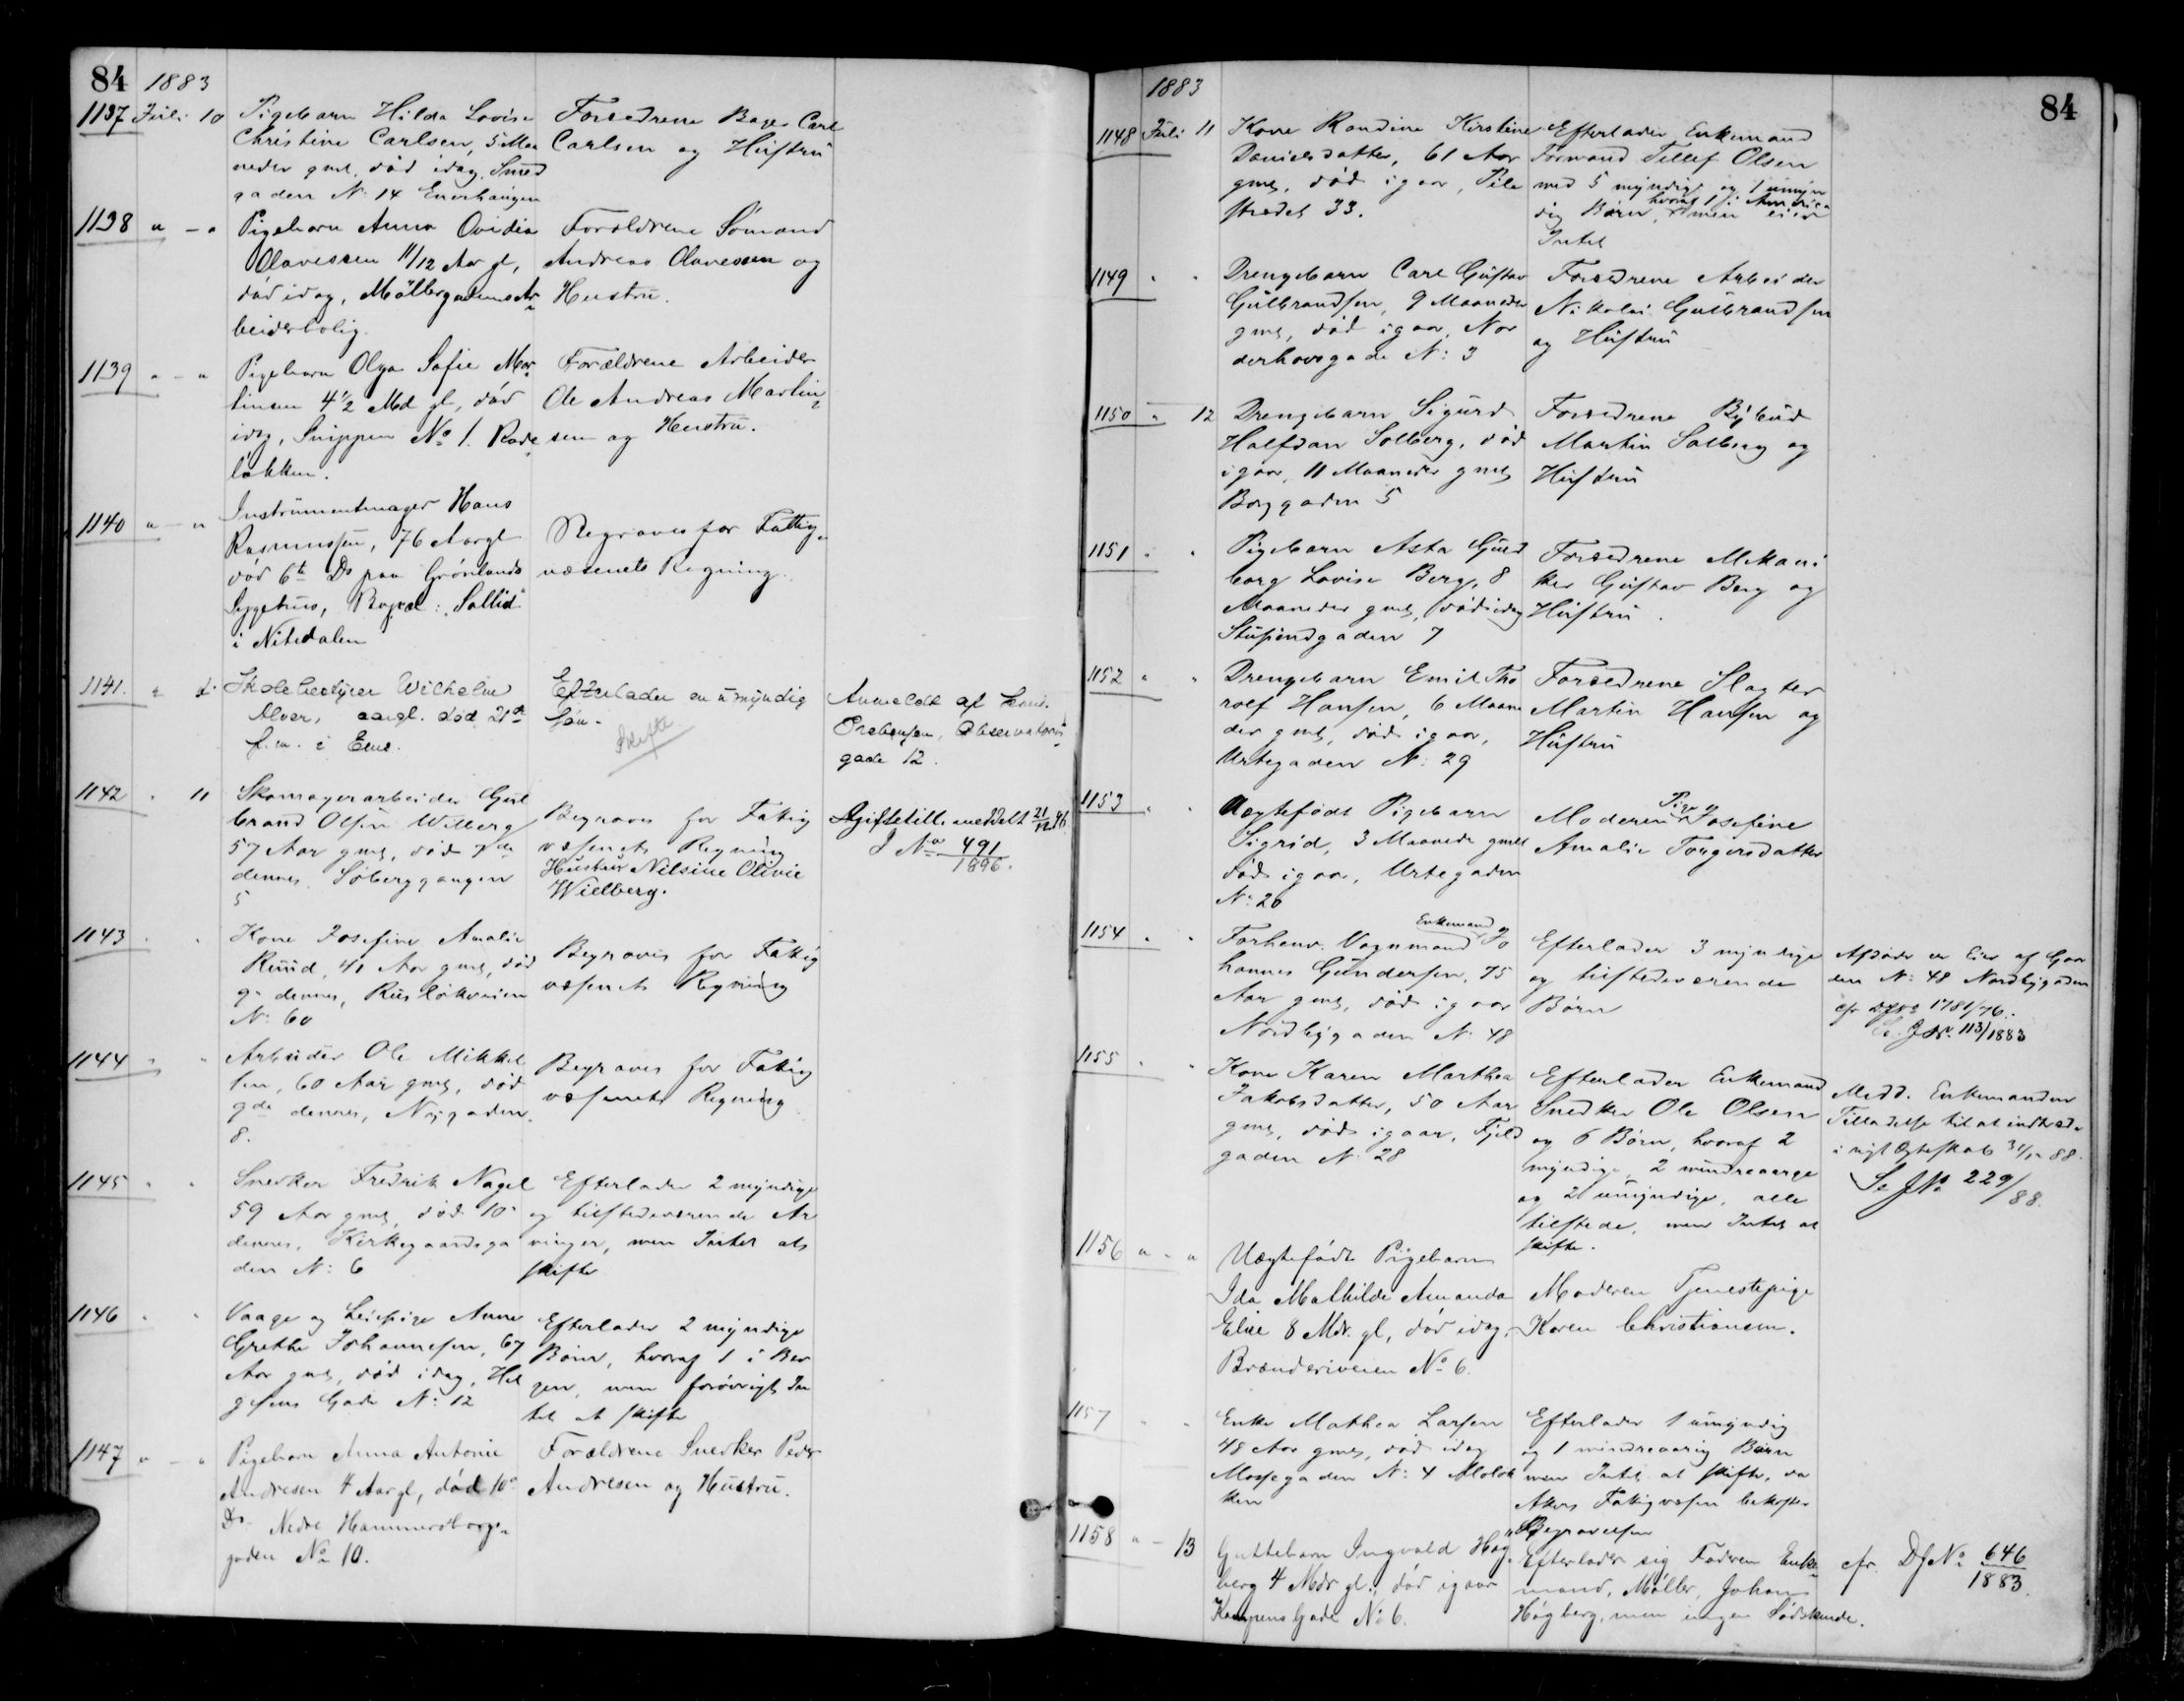 84 1883
1137 Juli 10 Pigebarn Hilda Lovise Forældrene Bager Carl
Christine Carlsen, 5 Maa Carlsen og Hustru
neder gml. død idag. Smed
gaden N: 14 Enerhaugen
1138 " - " Pigebarn Anna Ovidia Forældrene Sømand
Olavessen 11/12 Aar gl, Andreas Olavessen og
død idag, Møllergadens Ar Hustru.
beiderbolig.
1139 " - " Pigebarn Olga Sofie Mar Forældrene Arbeider
tinsen 4 1/2 Md gl, død Ole Andreas Martin
idag, Snippen No 1. Rode sen og Hustru.
løkken.
1140 " - " Instrumentmager Hans
Rasmussen, 76 Aar gl Begraves for Fattig
død 6te Ds paa Grønlands væsenets Regning.
Sygehus, Bopæl: "Sollid"
i Nitedalen
1141. " Skolebestyrer Wilhelm Efterlader en umyndig Anmeldt af
Alver, aargl. død 21de Søn. Observatorie
f. m. i Ems. Skifte gade 12.
1142 " 11 Skomagerarbeider Gul
brand Olsen Wilberg Begraves for Fattig Giftetill. meddelt 21/12 96
57 Aar gml, død 7de væsenets Regning J No 491
dennes. Søberggangen Hustru Nilsine Olivie 1896.
5 Wielberg.
1143 " " Kone Josefine Amalie
Ruud, 41 Aar gml, død Begraves for Fattig
9- dennes, Rusløkveien væsenets Regning
N: 60
1144 " " Arbeider Ole Mikkel Begraves for Fattig
sen, 60 Aar gml, død væsenets Regning
9de dennes, Nygaden
8.
1145 " " Snedker Fredrik Nagel Efterlader 2 myndige
59 Aar gml, død 10- og tilstedeværende Ar
dennes, Kirkegaardsga vinger, men Intet at
den N: 6 skifte
1146 " " Vaage og Leiepige Anne Efterlader 2 myndige
Grethe Johannesen, 67 Børn, hvoraf 1 i Ber
Aar gml, død idag, Hel gen, men forøvrigt In
gesens Gade N: 12 tet at skifte
1147 " - " Pigebarn Anna Antonie Forældrene Snedker Peder
Andresen 4 Aar gl, død 10de Andresen og Hustru.
Ds Nedre Hammersborg
gaden No 10.
1883 84
1148 Juli 11 Kone Randine Kirstine Efterlader Enkemand
Danielsdatter, 61 Aar Formand Tellef Olsen
gml, død igaar, Pile med 5 myndige og 1 umyn
strædet 33. dig Børn, hvoraf 1 i Amerika men eier
Intet
1149 " " Drengebarn Carl Gustav Forældrene Arbeider
Gulbrandsen, 9 Maaneder Nikolai Gulbrandsen
gml, død igaar, Nor og Hustru
derhovsgade N: 3
1150 " 12 Drengebarn Sigurd Forældrene Bybud
Halfdan Solberg, død Martin Solberg og
igaar, 11 Maaneder gml, Hustru
Borggaden 5
1151 " " Pigebarn Asta Guld Forældrene Mekani
borg Lovise Berg, 8 ker Gustav Berg og
Maaneder gml, død idag Hustru.
Stupendgaden 7
1152 " " Drengebarn Emil Tho Forældrene Slagter
rolf Hansen, 6 Maane Martin Hansen og
der gml, død igaar, Hustru
Urtegaden N: 29
1153 " " Uægtefødt Pigebarn Moderen Pige Josefine
Sigrid, 3 Maaneder gml Amalie Torgersdatter
død igaar, Urtegaden
N: 20
1154 " " Forhenv. Vognmand Enkemand Jo Efterlader 3 myndige Afdøde er Eier af Gaar
hannes Gundersen, 75 og tilstedeværende den N: 48 Nordbygaden
Aar gml, død igaar Børn cfr 1781/76.
Nordbygaden N. 48 Se. J No. 113/1883
1155 " " Kone Karen Marthea Efterlader Enkemand Medd. Enkemanden
Jakobsdatter, 50 Aar Snedker Ole Olsen Tilladelse til at indtræde
gml, død igaar, Fjeld og 6 Børn, hvoraf 2 i nyt Ægteskab 31/12 88.
gaden N. 28 myndige, 2 mindreaarige Se J No 229/88.
og 2 umyndige, alle
tilstede, men Intet at
skifte.
1156 " - " Uægtefødt Pigebarn
Ida Mathilde Amanda Moderen Tjenestepige
Elise 8 Mdr. gl, død idag, Karen Christiansen.
Brænderiveien No 6.
1157 " " Enke Mathea Larsen Efterlader 1 umyndig
48 Aar gml, død idag og 1 mindreaarig Børn
Mossegaden N: 4 Aløk men Intet at skifte, da
ken Akers Fattigvæsen bekoster
Begravelsen
1158 " - 13 Guttebarn Ingvald Høg Efterlader sig Faderen Enke cfr. DJ No 646
berg 4 Mdr gl., død igaar mand, Møller, Johan 1883.
Kampens Gade No 6. Høgberg, men ingen Sødskende.